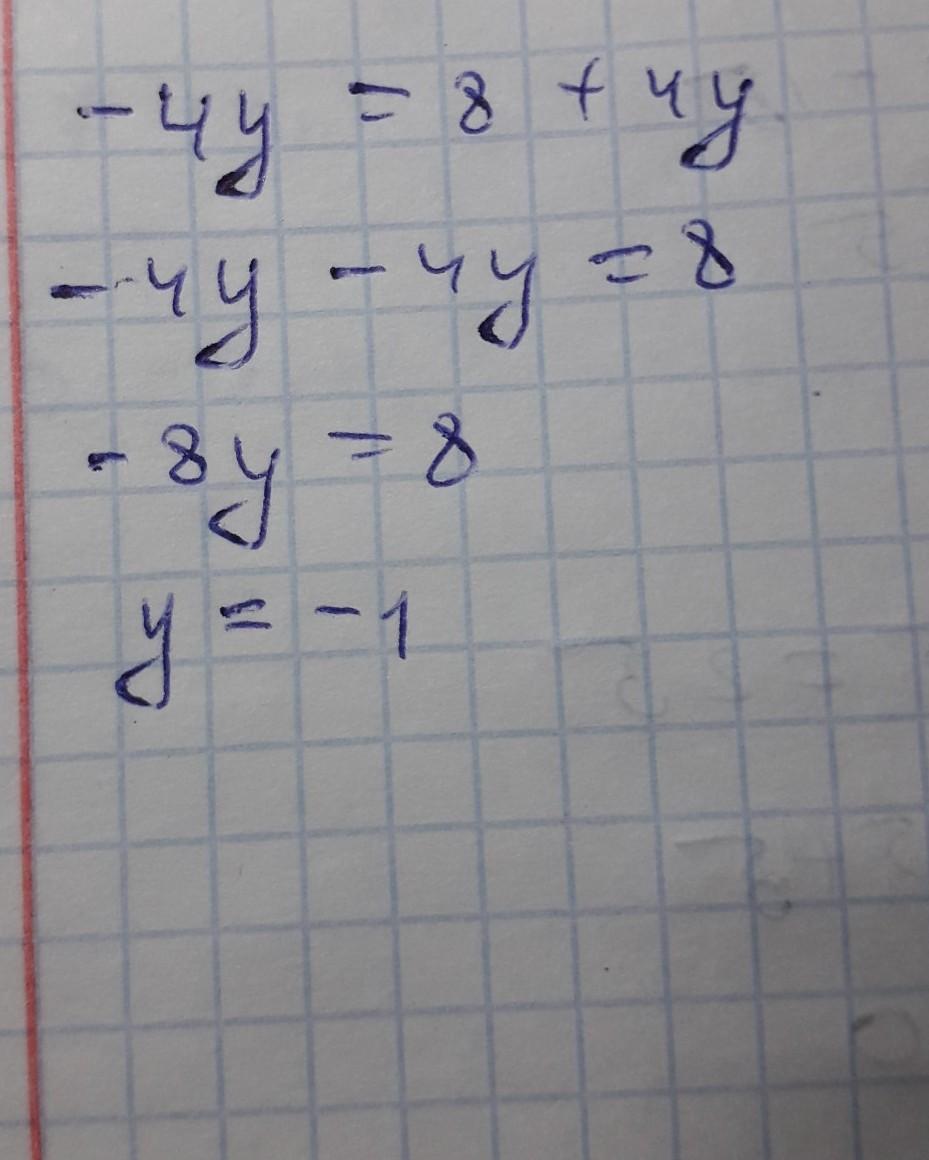 -4y = 8 + 4y
-4y - 4y = 8
-8y = 8
y = -1